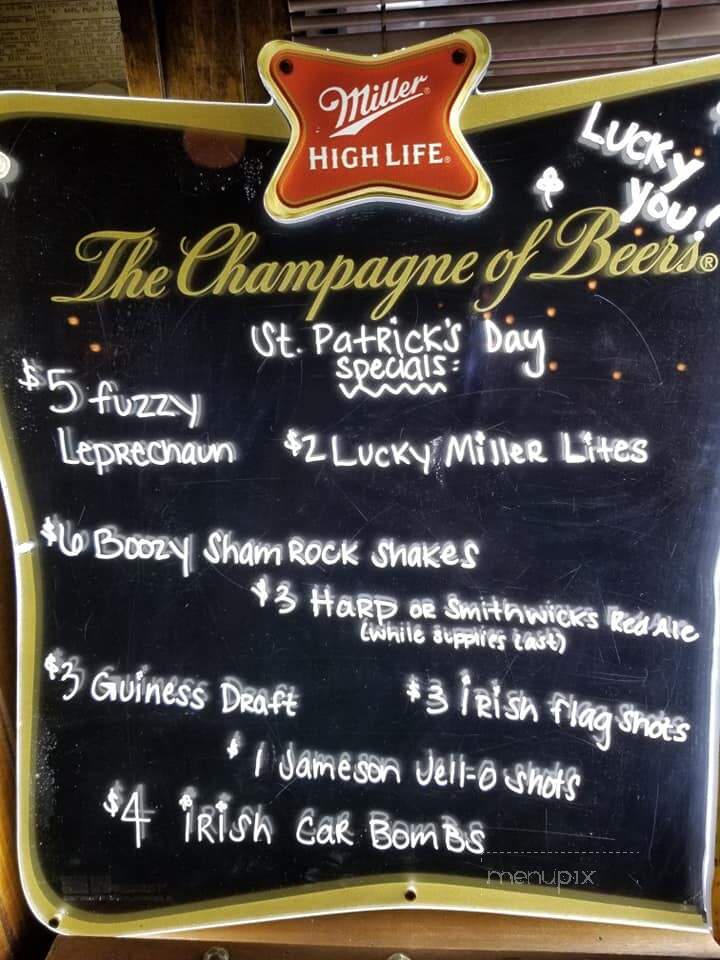 Miller
HIGH LIFE®
LUCKY
YOU!
The Champagne of Beers®
St. Patrick's Day
Specials:
$5 fuzzy
Leprechaun
$2 Lucky Miller Lites
$6 Boozy Shamrock Shakes
$3 Harp or Smithwicks Red Ale
(while supplies last)
$3 Guiness Draft
$3 Irish flag shots
$1 Jameson Jell-o shots
$4 Irish Car Bombs
menupix